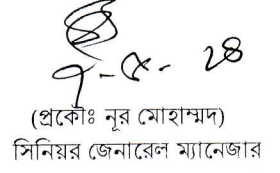 ৭-৫-২৪
(প্রকৌঃ নূর মোহাম্মদ)
সিনিয়র জেনারেল ম্যানেজার